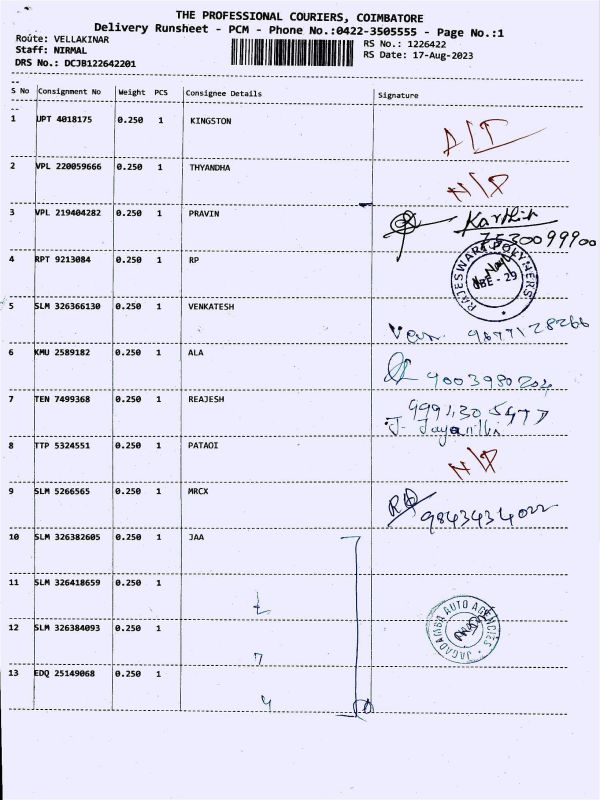 THE PROFESSIONAL COURIERS, COIMBATORE
Delivery Runsheet - PCM - Phone No.:0422-3505555 - Page No.:1
Route: VELLAKINAR
RS No.: 1226422
Staff: NIRMAL
RS Date: 17-Aug-2023
DRS No.: DCJB122642201
S No Consignment No Weight PCS Consignee Details Signature
1 UPT 4018175 0.250 1 KINGSTON
2 VPL 220059666 0.250 1 THYANDHA N/P
3 VPL 219404282 0.250 1 PRAVIN Karthik
7530099900
4 RPT 9213084 0.250 1 RP RAJESWARI POLYMERS CBE - 29
5 SLM 326366130 0.250 1 VENKATESH Ven. 9677128266
6 KMU 2589182 0.250 1 ALA 9003980204
7 TEN 7499368 0.250 1 REAJESH
8 TTP 5324551 0.250 1 PATAOI N/P
9 SLM 5266565 0.250 1 MRCX 9843434022
10 SLM 326382605 0.250 1 JAA
11 SLM 326418659 0.250 1
12 SLM 326384093 0.250 1 JAGADAMBA AUTO AGENCIES
13 EDQ 25149068 0.250 1